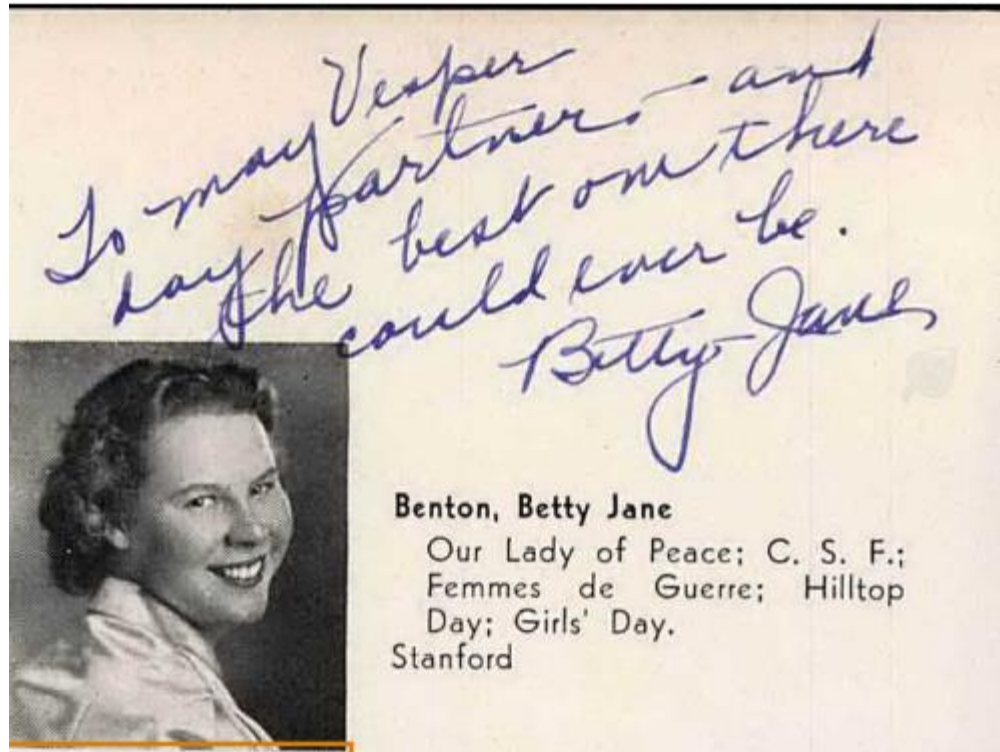 To my Vesper
day partner - and
the best one there
could ever be.
Betty Jane
Benton, Betty Jane
Our Lady of Peace; C. S. F.;
Femmes de Guerre; Hilltop
Day; Girls' Day.
Stanford